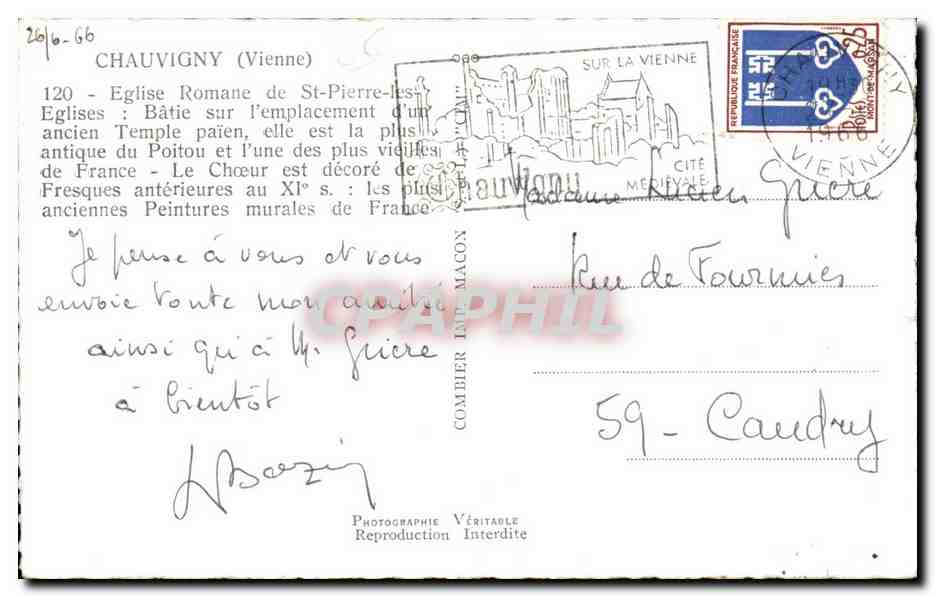 26/6-66
CHAUVIGNY (Vienne)
120 - Eglise Romane de St-Pierre-les-
Eglises : Bâtie sur l'emplacement d'un
ancien Temple païen, elle est la plus
antique du Poitou et l'une des plus vieilles
de France - Le Chœur est décoré de
Fresques antérieures au XIe s. : les plus
anciennes Peintures murales de France
Je pense à vous et vous
envoie toute mon amitié
ainsi qu'à M. Gricre
à bientôt
COMBIER IMP. MACON
SUR LA VIENNE
CITÉ
MÉDIÉVALE
Chauvigny
REPUBLIQUE FRANÇAISE
0,25
MONT-DE-MARSAN
VIENNE
Madame Lucien Gricre
Rue de Fourmies
59 - Caudry
PHOTOGRAPHIE VÉRITABLE
Reproduction Interdite
CPAPHIL